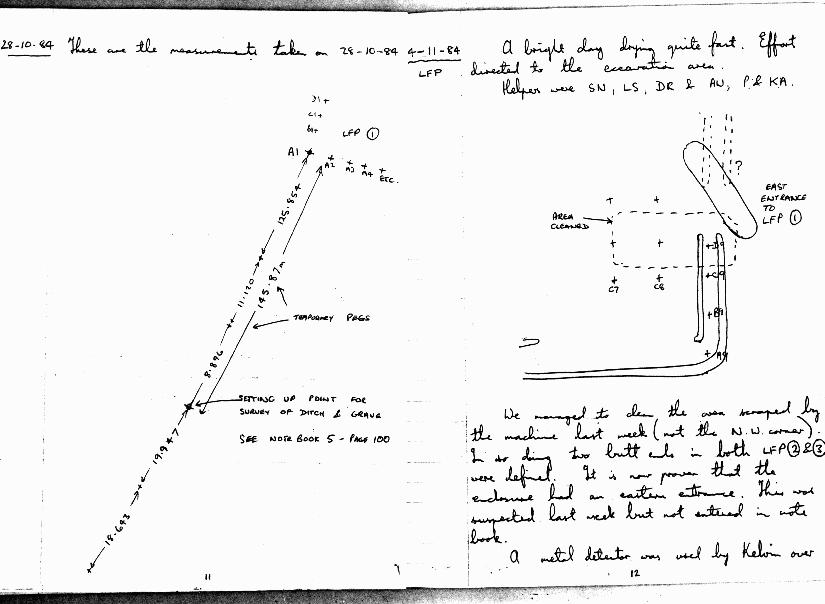 28-10-84 These are the measurements taken on 28-10-84
D1+
C1+
B1+
LFP ①
A1 +
+ A2 + A3 + A4 + ETC.
125.854
11.120
145.87m
8.896
TEMPORARY PEGS
SETTING UP POINT FOR
SURVEY OF DITCH & GRAVE
SEE NOTE BOOK 5 - PAGE 100
19.947
18.643
11
4-11-84 A bright day drying quite fast. Effort
LFP directed to the excavation area.
Helpers were SN, LS, DR & AW, P. & KA.
?
EAST
ENTRANCE
TO
LFP ①
AREA
CLEANED
+ D9
+ C9
+ C7
+ C8
+ B9
+ A9
We managed to clean the area scraped by
the machine last week (not the N.W. corner).
In so doing two butt ends in both LFP ② & ③
were defined. It is now proven that the
enclosure had an eastern entrance. This was
suspected last week but not entered in note
book.
A metal detector was used by Kelvin over
12